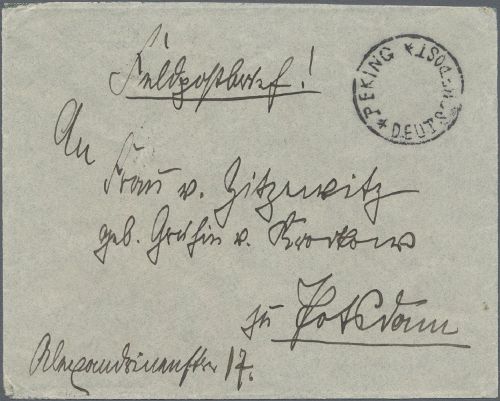 Feldpostbrief!
PEKING * DEUTSCHE POST *
An
Frau v. Zitzewitz
geb. Gräfin v. Krockow
zu Potsdam
Alexandrinenstr 17.